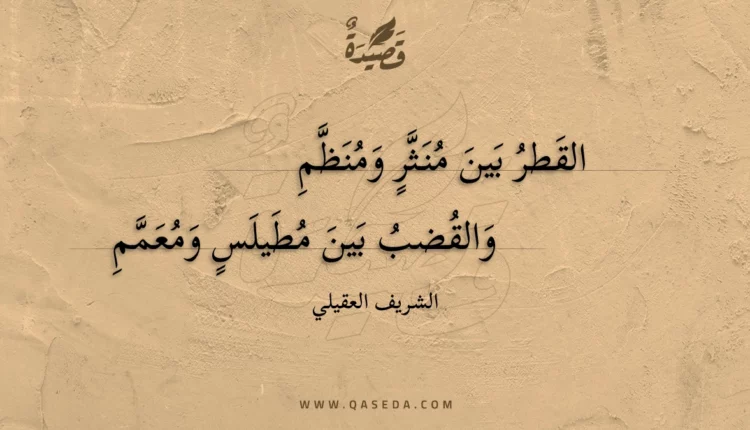 قَصِيدَةٌ
القَطرُ بَينَ مُنَثَّرٍ وَمُنَظَّمِ
وَالقُضبُ بَينَ مُطَيلَسٍ وَمُعَمَّمِ
الشريف العقيلي
WWW.QASEDA.COM